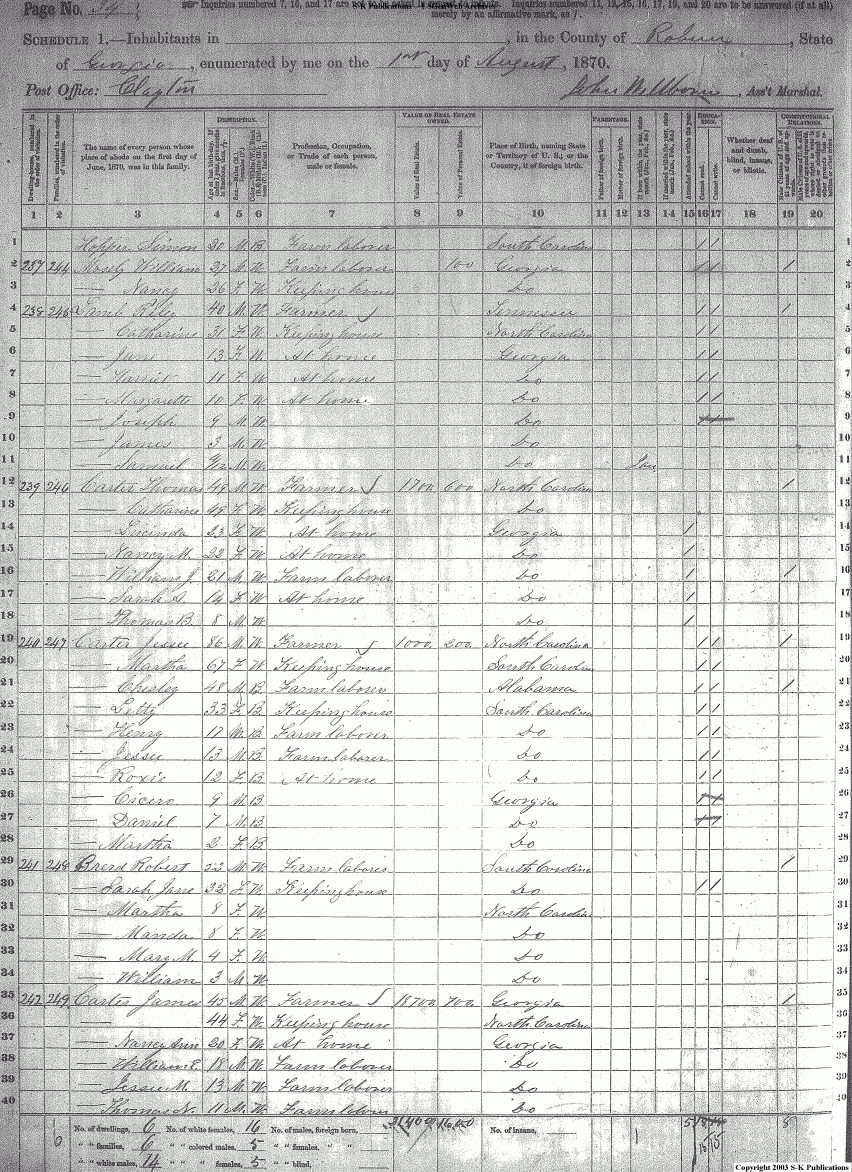 Page No. 34
Inquiries numbered 7, 16, and 17 are not
S-K Publications
Inquiries numbered 11, 12, 15, 16, 17, 19, and 20 are to be answered (if at all)
merely by an affirmative mark, as /.
SCHEDULE 1.—Inhabitants in , in the County of Rabun, State
of Georgia, enumerated by me on the 1st day of August, 1870.
Post Office: Clayton John Wellborn, Ass't Marshal.
DESCRIPTION. VALUE OF REAL ESTATE OWNED. PARENTAGE. EDUCATION. CONSTITUTIONAL RELATIONS.
The name of every person whose place of abode on the first day of June, 1870, was in this family.
Profession, Occupation, or Trade of each person, male or female.
Value of Real Estate.
Value of Personal Estate.
Place of Birth, naming State or Territory of U. S.; or the Country, if of foreign birth.
Father of foreign birth.
Mother of foreign birth.
Attended school within the year.
Cannot read.
Cannot write.
Whether deaf and dumb, blind, insane, or idiotic.
1 2 3 4 5 6 7 8 9 10 11 12 13 14 15 16 17 18 19 20
1 Hopper Simon 20 M. B. Farm laborer South Carolina / / 1
2 237 244 Mosely William 27 M. W. Farm laborer 100 Georgia / / / 2
3 — Nancy 26 F. W. Keeping house Do 3
4 238 245 Lamb Riley 40 M. W. Farmer Tennessee / / / 4
5 — Catharine 31 F. W. Keeping house North Carolina / / 5
6 — Jane 13 F. W. At home Georgia / / 6
7 — Harriet 11 F. W. At home Do / / 7
8 — Margarette 10 F. W. At home Do / / 8
9 — Joseph 9 M. W. Do 9
10 — James 3 M. W. Do 10
11 — Samuel M. W. Do Jan 11
12 239 246 Carter Thomas 49 M. W. Farmer 1700 600 North Carolina / 12
13 — Catharine 48 F. W. Keeping house Do 13
14 — Lucinda 23 F. W. At home Georgia / 14
15 — Nancy M. 22 F. W. At home Do / 15
16 — William J. 21 M. W. Farm laborer Do / / 16
17 — Sarah S. 14 F. W. At home Do / 17
18 — Thomas B. 8 M. W. Do / 18
19 240 247 Carter Jessee 86 M. W. Farmer 1000 200 North Carolina / / / 19
20 — Martha 67 F. W. Keeping house South Carolina / / 20
21 — Chesley 48 M. B. Farm laborer Alabama / / / 21
22 — Letty 33 F. B. Keeping house South Carolina / / 22
23 — Henry 17 M. B. Farm laborer Do / / 23
24 — Jessee 13 M. B. Farm laborer Do / / 24
25 — Roxie 12 F. B. At home Do / / 25
26 — Cicero 9 M. B. Georgia 26
27 — Daniel 7 M. B. Do 27
28 — Martha 2 F. B. Do 28
29 241 248 Robert M. W. Farm laborer South Carolina / 29
30 — Sarah Jane 33 F. W. Keeping house Do / / 30
31 — Martha 8 F. W. North Carolina 31
32 — Manda 8 F. W. Do 32
33 — Mary M. 4 F. W. Do 33
34 — William 3 M. W. Do 34
35 242 249 Carter James 45 M. W. Farmer 18700 700 Georgia / 35
36 — 44 F. W. Keeping house North Carolina 36
37 — Nancy Ann 20 F. W. At home Georgia 37
38 — William E. 18 M. W. Farm laborer Do 38
39 — Jessee M. 13 M. W. Farm laborer Do 39
40 — Thomas N. 11 M. W. Farm laborer Do 40
No. of dwellings, 6 No. of white females, 16 No. of males, foreign born, 21400 1600 No. of insane, 8
" " families, 6 " " colored males, 5 " " females, "
" " white males, 14 " " females, 5 " " blind,
Copyright 2003 S-K Publications